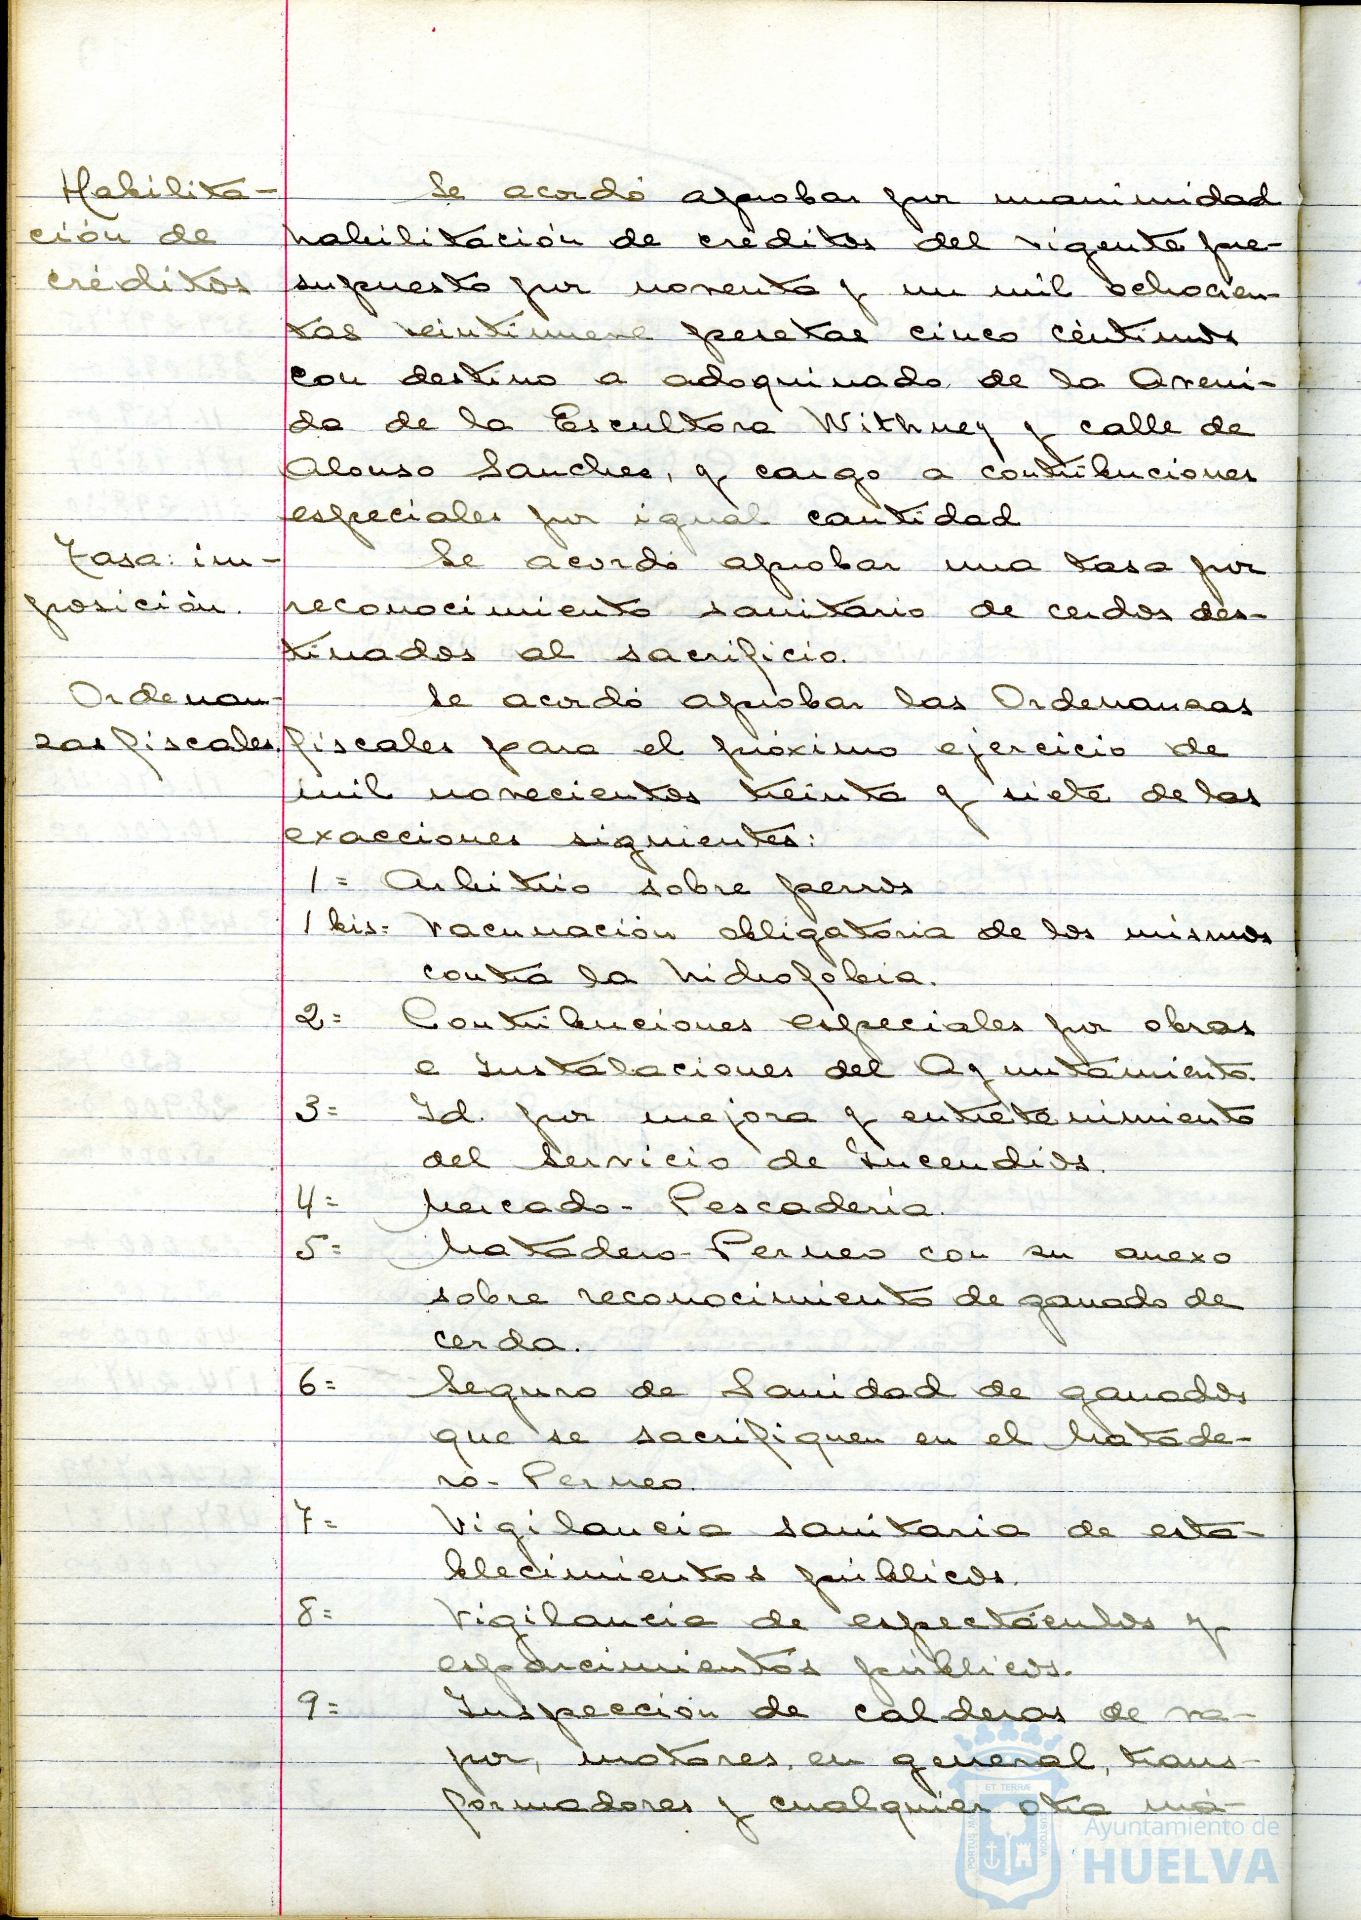 Habilita-
ción de
créditos
Se acordó aprobar por unanimidad
habilitación de créditos del vigente pre-
supuesto por noventa y un mil ochocien-
tas veintinueve pesetas cinco céntimos
con destino a adoquinado de la Aveni-
da de la Escultora Withney y calle de
Alonso Sanchez, y cargo a contribuciones
especiales por igual cantidad
Tasa: im-
posición.
Se acordó aprobar una tasa por
reconocimiento sanitario de cerdos des-
tinados al sacrificio.
Ordenan-
zas fiscales.
Se acordó aprobar las Ordenanzas
fiscales para el próximo ejercicio de
mil novecientos treinta y siete de las
exacciones siguientes:
1= Arbitrio sobre perros
1 bis= Vacunación obligatoria de los mismos
contra la hidrofobia.
2= Contribuciones especiales por obras
e Instalaciones del Ayuntamiento.
3= Id. por mejora y entretenimiento
del Servicio de Incendios.
4= Mercado-Pescadería.
5= Matadero-Perneo con su anexo
sobre reconocimiento de ganado de
cerda.
6= Seguro de Sanidad de ganados
que se sacrifiquen en el Matade-
ro-Perneo.
7= Vigilancia sanitaria de esta-
blecimientos públicos.
8= Vigilancia de espectáculos y
esparcimientos públicos.
9= Inspección de calderas de va-
por, motores, en general, trans-
formadores y cualquier otra má-
ET TERRÆ
PORTUS MARIS
CUSTODIA
Ayuntamiento de
HUELVA